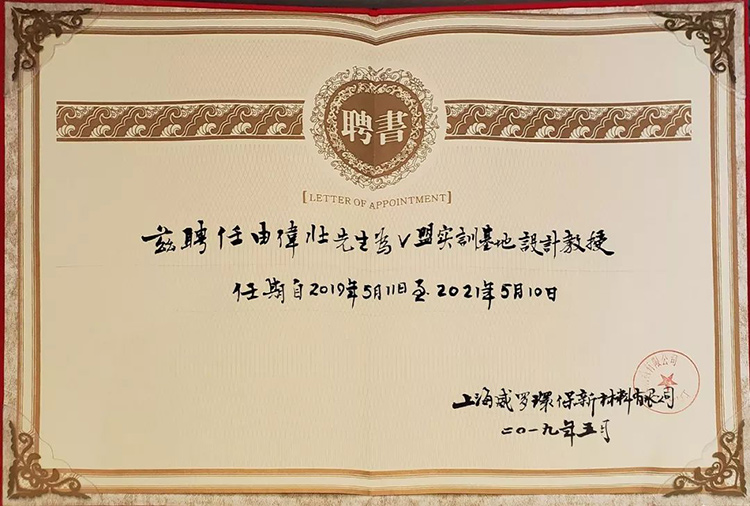 聘書
[LETTER OF APPOINTMENT]
茲聘任由偉壮先生為V盟实訓基地設計教授
任期自2019年5月11日至2021年5月10日
上海威罗環保新材料有限公司
二〇一九年五月